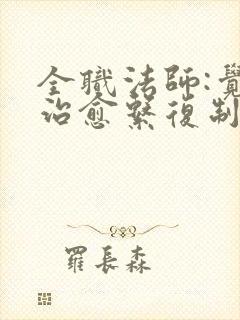 全職法師:覺
治愈繫復制
羅長森